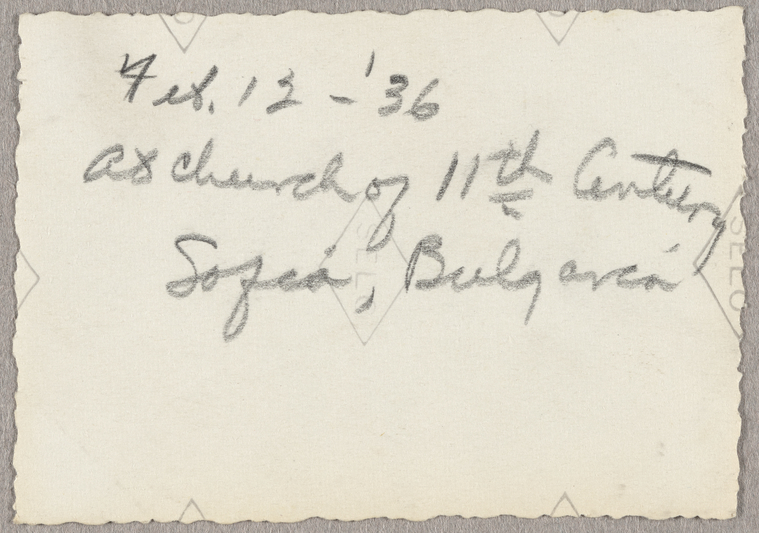 Feb. 12 - '36
at church of 11th Century
Sofia, Bulgaria
SELO
SELO